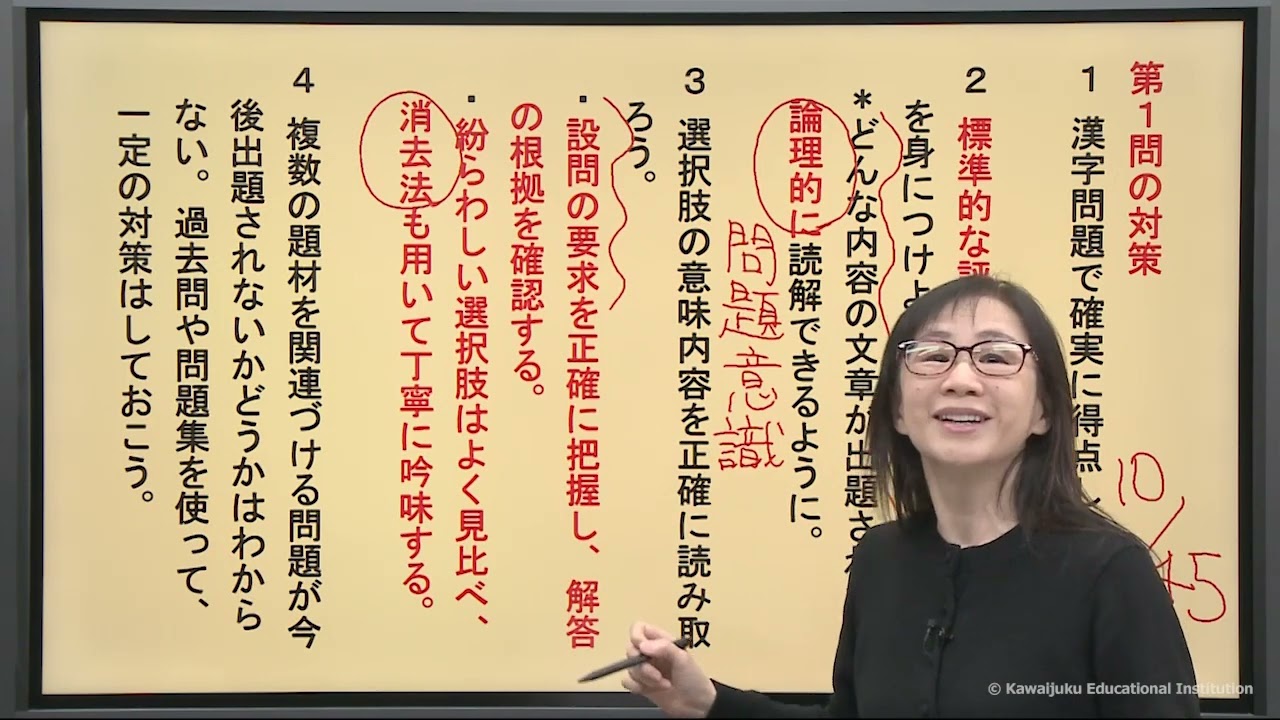 第1問の対策
1 漢字問題で確実に得点し
2 標準的な評
を身につけよ
*どんな内容の文章が出題され
論理的に読解できるように。
問題意識
3 選択肢の意味内容を正確に読み取
ろう。
・設問の要求を正確に把握し、解答
の根拠を確認する。
・紛らわしい選択肢はよく見比べ、
消去法も用いて丁寧に吟味する。
4 複数の題材を関連づける問題が今
後出題されないかどうかはわから
ない。過去問や問題集を使って、
一定の対策はしておこう。
10/45
© Kawaijuku Educational Institution